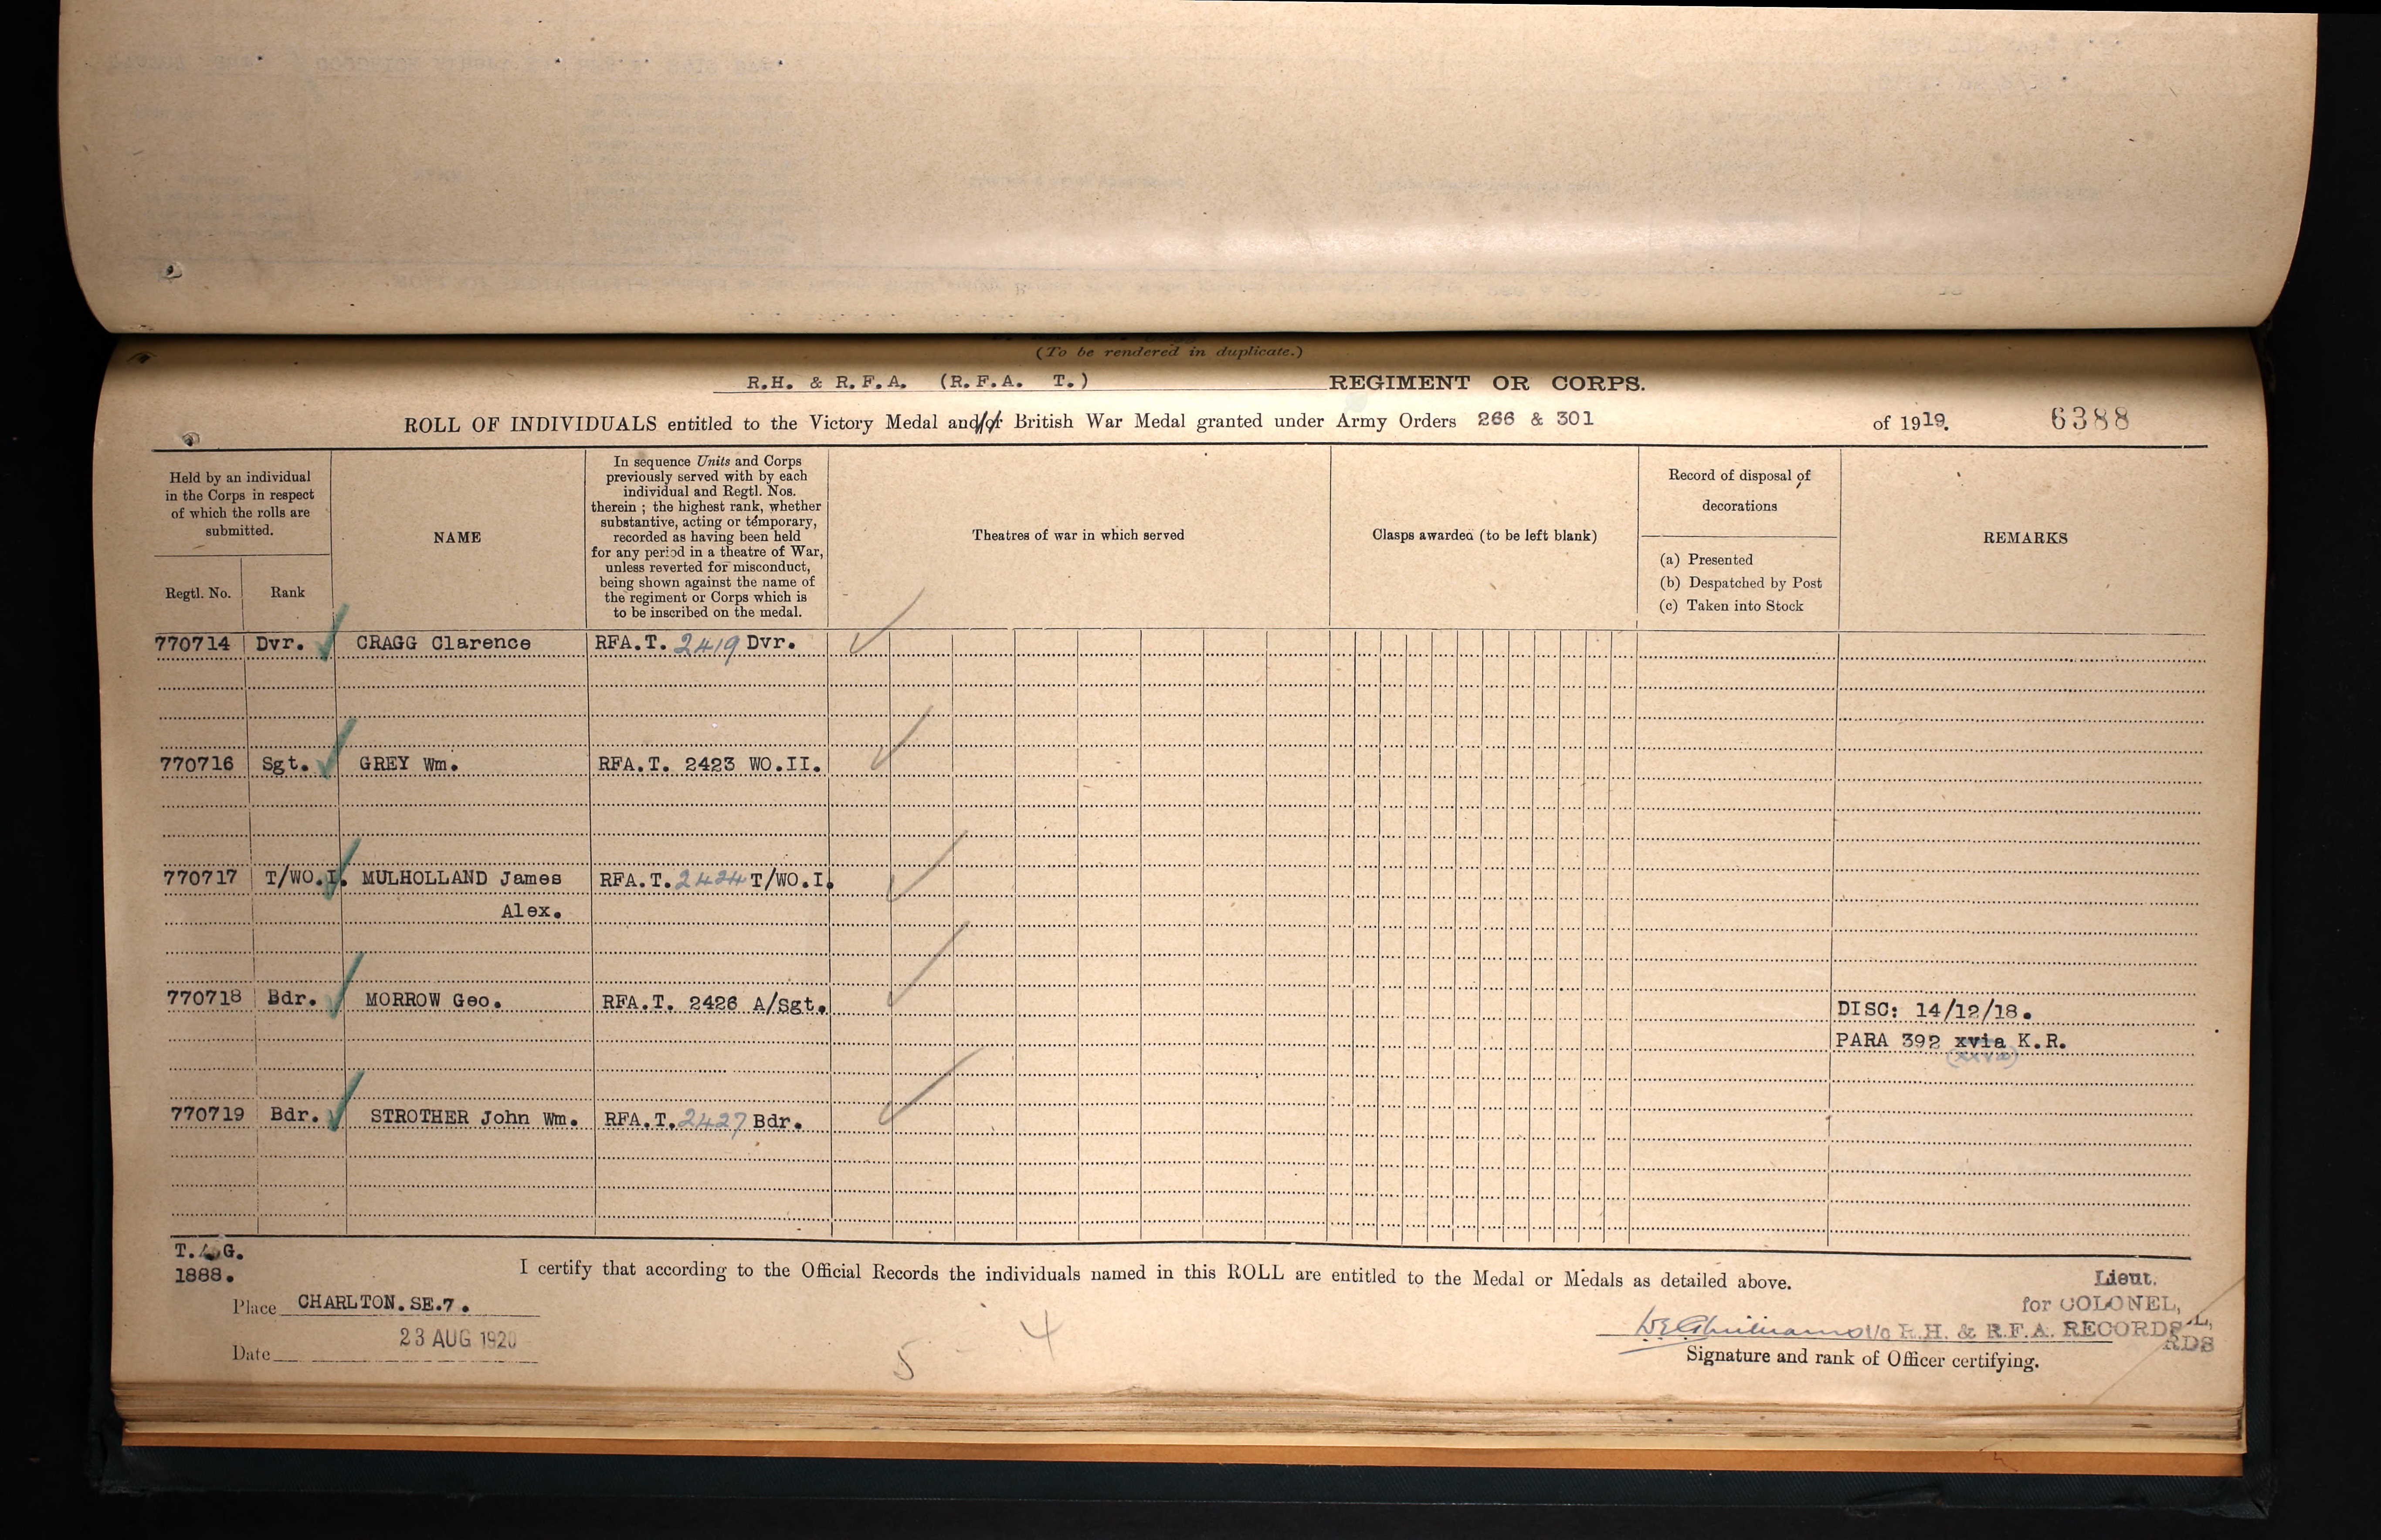 (To be rendered in duplicate.)
R.H. & R.F.A. (R.F.A. T.) REGIMENT OR CORPS.
ROLL OF INDIVIDUALS entitled to the Victory Medal and/or British War Medal granted under Army Orders 266 & 301 of 1919. 6388
Held by an individual
in the Corps in respect
of which the rolls are
submitted.
Regtl. No.
Rank
NAME
In sequence Units and Corps
previously served with by each
individual and Regtl. Nos.
therein ; the highest rank, whether
substantive, acting or temporary,
recorded as having been held
for any period in a theatre of War,
unless reverted for misconduct,
being shown against the name of
the regiment or Corps which is
to be inscribed on the medal.
Theatres of war in which served
Clasps awarded (to be left blank)
Record of disposal of
decorations
(a) Presented
(b) Despatched by Post
(c) Taken into Stock
REMARKS
770714 Dvr. CRAGG Clarence RFA.T. 2419 Dvr.
770716 Sgt. GREY Wm. RFA.T. 2423 WO.II.
770717 T/WO.I. MULHOLLAND James RFA.T. 2424 T/WO.I.
Alex.
770718 Bdr. MORROW Geo. RFA.T. 2426 A/Sgt. DISC: 14/12/18.
PARA 392 xvia K.R.
(xvia)
770719 Bdr. STROTHER John Wm. RFA.T. 2427 Bdr.
T. G.
1888.
I certify that according to the Official Records the individuals named in this ROLL are entitled to the Medal or Medals as detailed above.
Place CHARLTON. SE.7.
Date 23 AUG 1920
5 - 4
Lieut.
for COLONEL,
i/o R.H. & R.F.A. RECORDS
RDS
Signature and rank of Officer certifying.